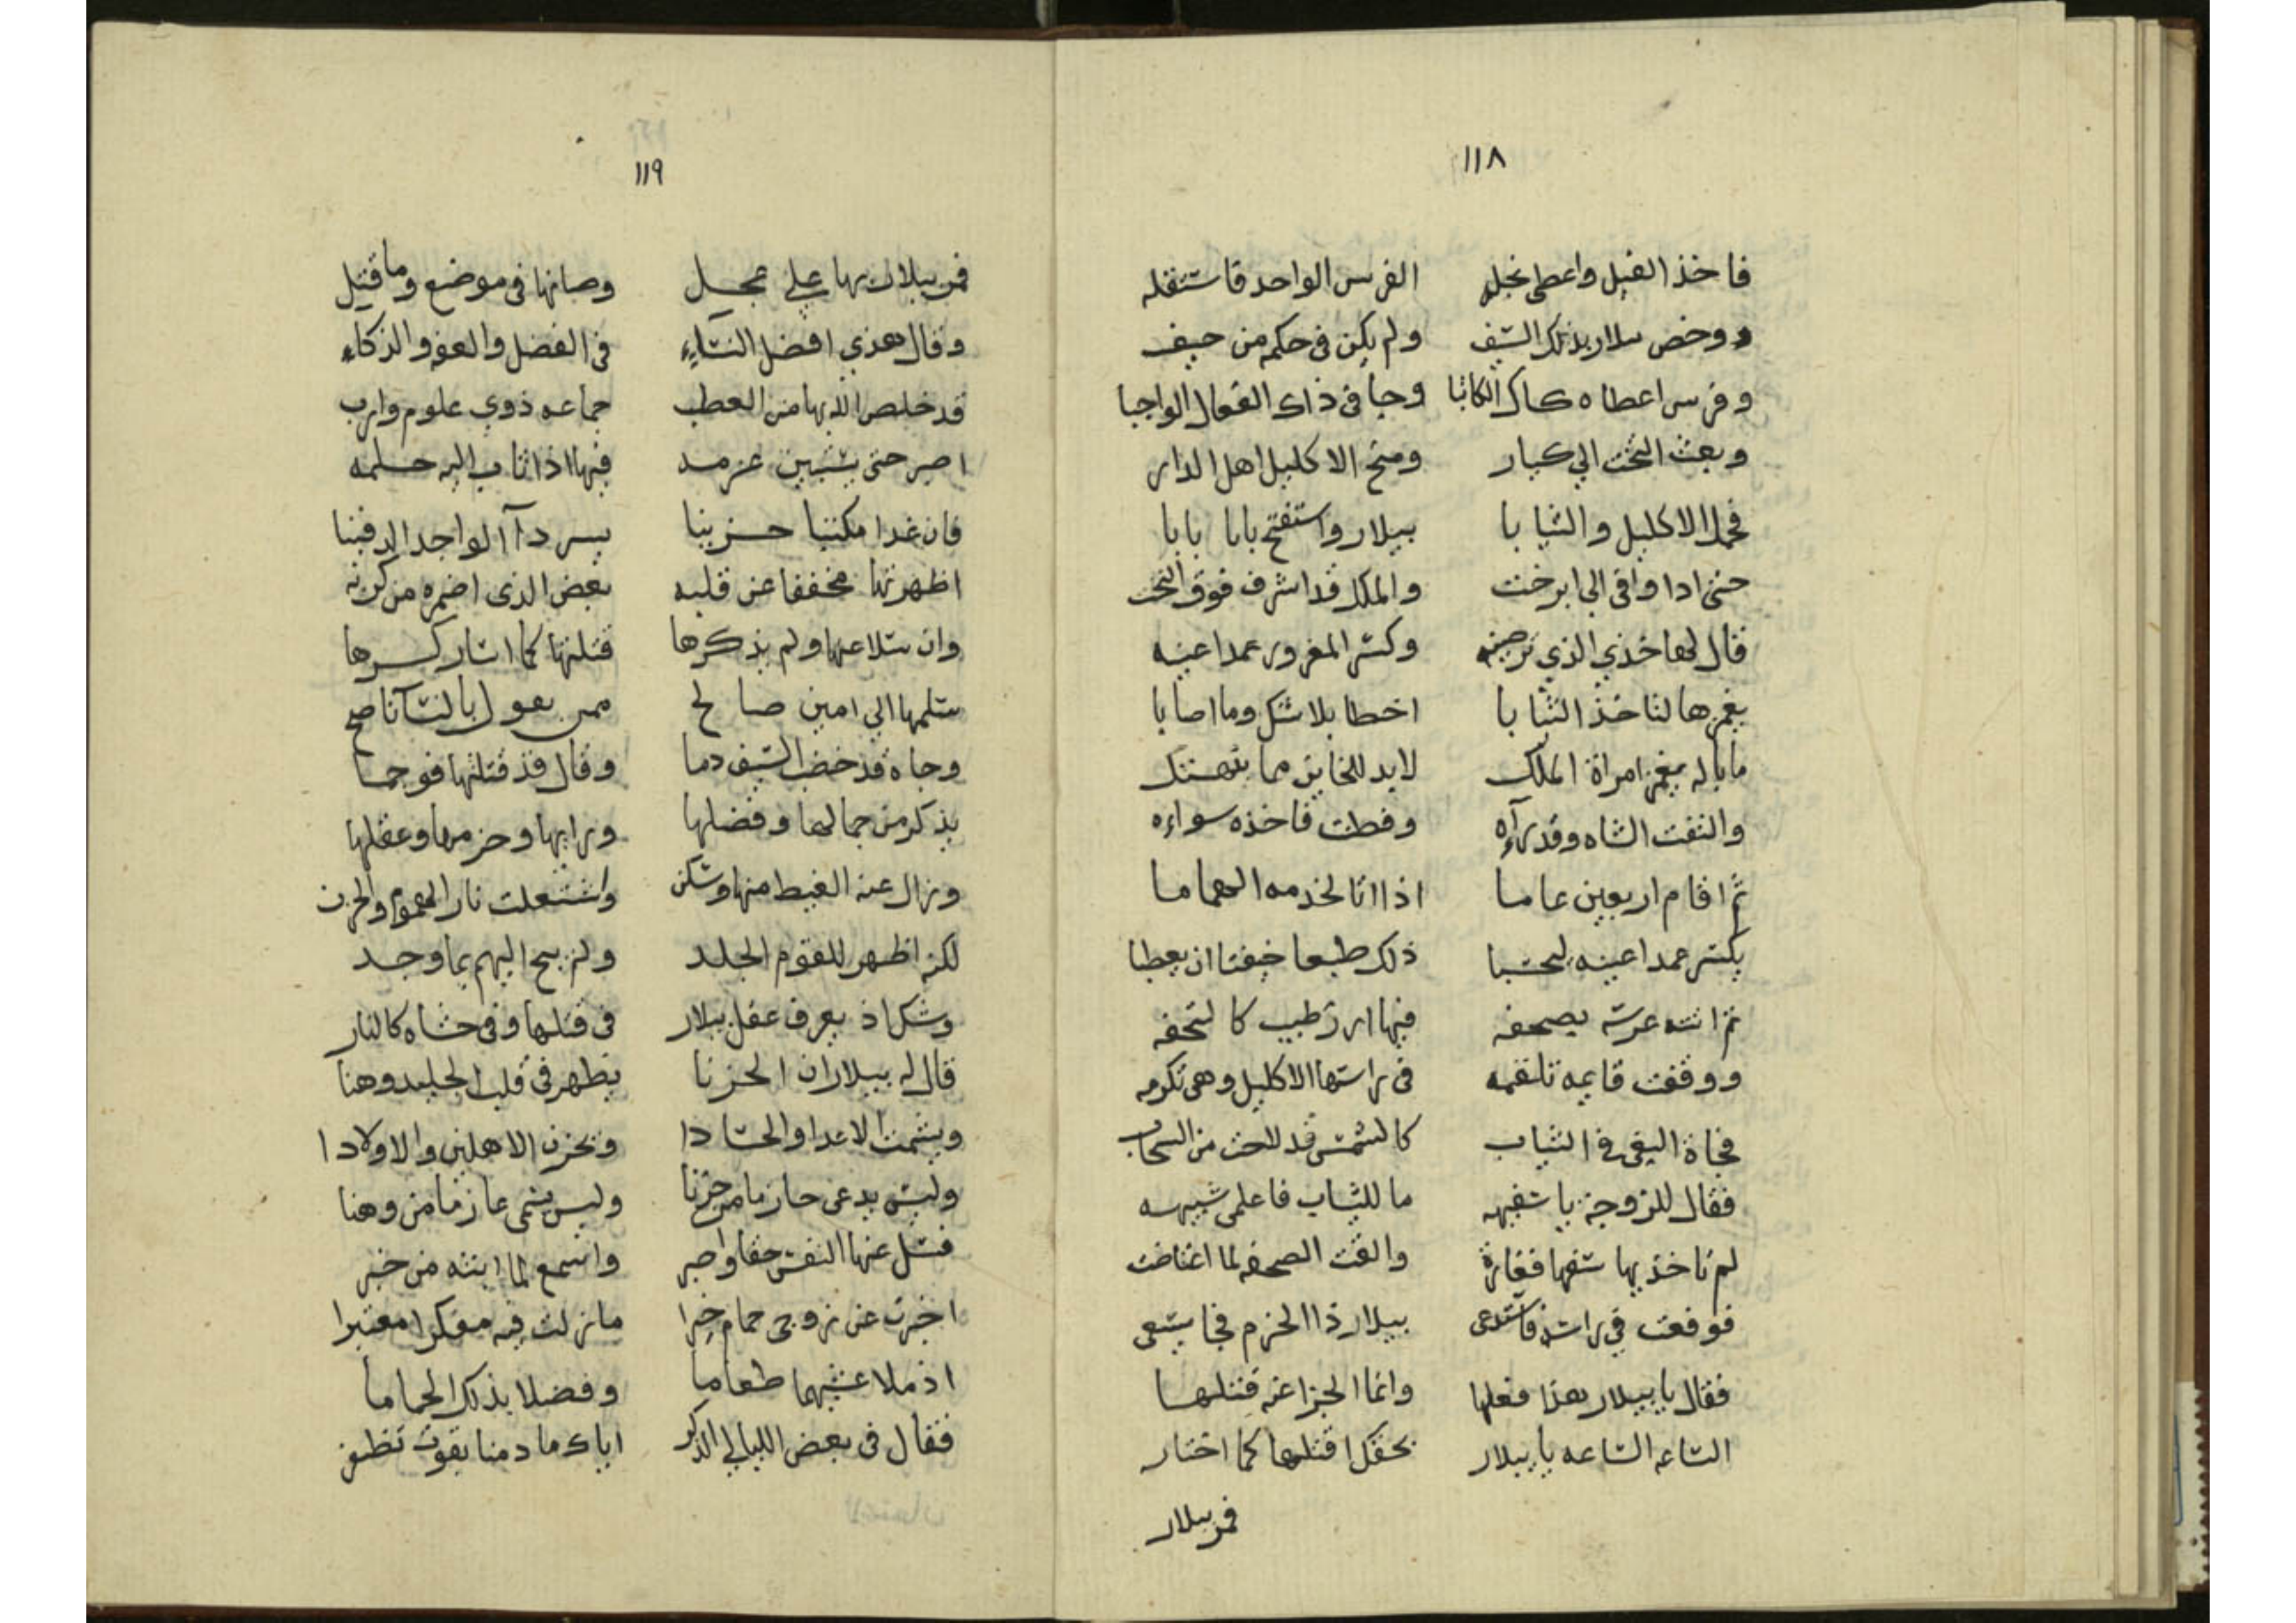 ١١٨
فاخذ الفيل واعطى نجله الفرس الواحد فاستقله
ووخص بيلار بذلك السيف ولم يكن في حكمه من حيف
وفرس اعطاه كاك الكاتبا وحبا في ذاك الفعال الواجبا
وبعث التخت الي كبار ومنح الاكليل اهل الدار
فحمل الاكليل والثيابا بيلار واستفتح بابا بابا
حتى ادا وافى الى ابرخت والملك قد اشرف فوق التخت
قال لها خذي الذي ترضينه وكسر المغرور عمدا عينه
يغمزها لتاخذ الثيابا اخطا بلا شك وما اصابا
ما باله يغمز امراة الملك لا بد للخاين مما ينهتك
والتفت الشاه وقد رآه وفطنت فاخذه سواه
ثم اقام اربعين عاما اذا اتا لخدمه الهماما
يكسر عمدا عينه ليحسبا ذلك طبعا خيفتا ان يعطبا
ثم اتته عرسه بصحفه فيها ارز طيب كالتحفه
ووقفت قايمه تلقمه في راسها الاكليل وهي تكرمه
فجاة البغى في الثياب كالشمس قد لاحت من السحاب
فقال للزوجة يا سفيهه ما للثياب فاعلمي شبيهه
لم تاخذيها سفها فغارة والقت الصحفه لما اغتاضت
فوقعت في راسه فاستدعى بيلار ذا الحزم فجا يسعى
فقال يا بيلار هذا فعلها وانما الجزا عنه قتلها
الساعه الساعه يا بيلار بحقك اقتلها كما اختار
فمر بيلار
١١٩
فمر بيلار بها علي عجل وصانها في موضع وما قتل
وقال هذي افضل النساء في الفضل والعفو والذكاء
قد خلص الله بها من العطب جماعه ذوي علوم وارب
اصبر حتى يستبين عزمه فيها اذا ثاب اليه حلمه
فان غدا مكتئبا حزينا يسر دآ الواجد الدفينا
اظهرتها مخففا عن قلبه بعض الذى اضمره من كربه
وان سلا عنها ولم يذكرها قتلتها كما اشار كسرها
سلمها الي امين صالح ممن يعول بالنسا ناصح
وجاه قد خضب السيف دما وقال قد قتلتها فوجما
يذكر من جمالها وفضلها ورايها وحزمها وعقلها
وزال عنه الغيط منها وسكن واشتعلت نار الهموم والحزن
لكنه اظهر للقوم الجلد ولم يبح اليهم بما وجد
وشك اذ يعرف عقل بيلار في قتلها وفي حشاه كالنار
قال له بيلار ان الحزنا يظهر في قلب الجليد وهنا
ويشمت الاعدا والحسادا وتحزن الاهلين والاولادا
وليس يدعى حازما من حزنا وليس يسمى عازما من وهنا
فسل عنها النفس حقا واصبر واسمع لما ابثه من خبر
اخبرت عن زوجى حمام خبرا ما زلت فيه مفكرا معتبرا
اذ ملا عشيهما طعاما وفضلا بذلك الحماما
فقال في بعض الليالي الذكر اياك ما دمنا بقوت نظفر